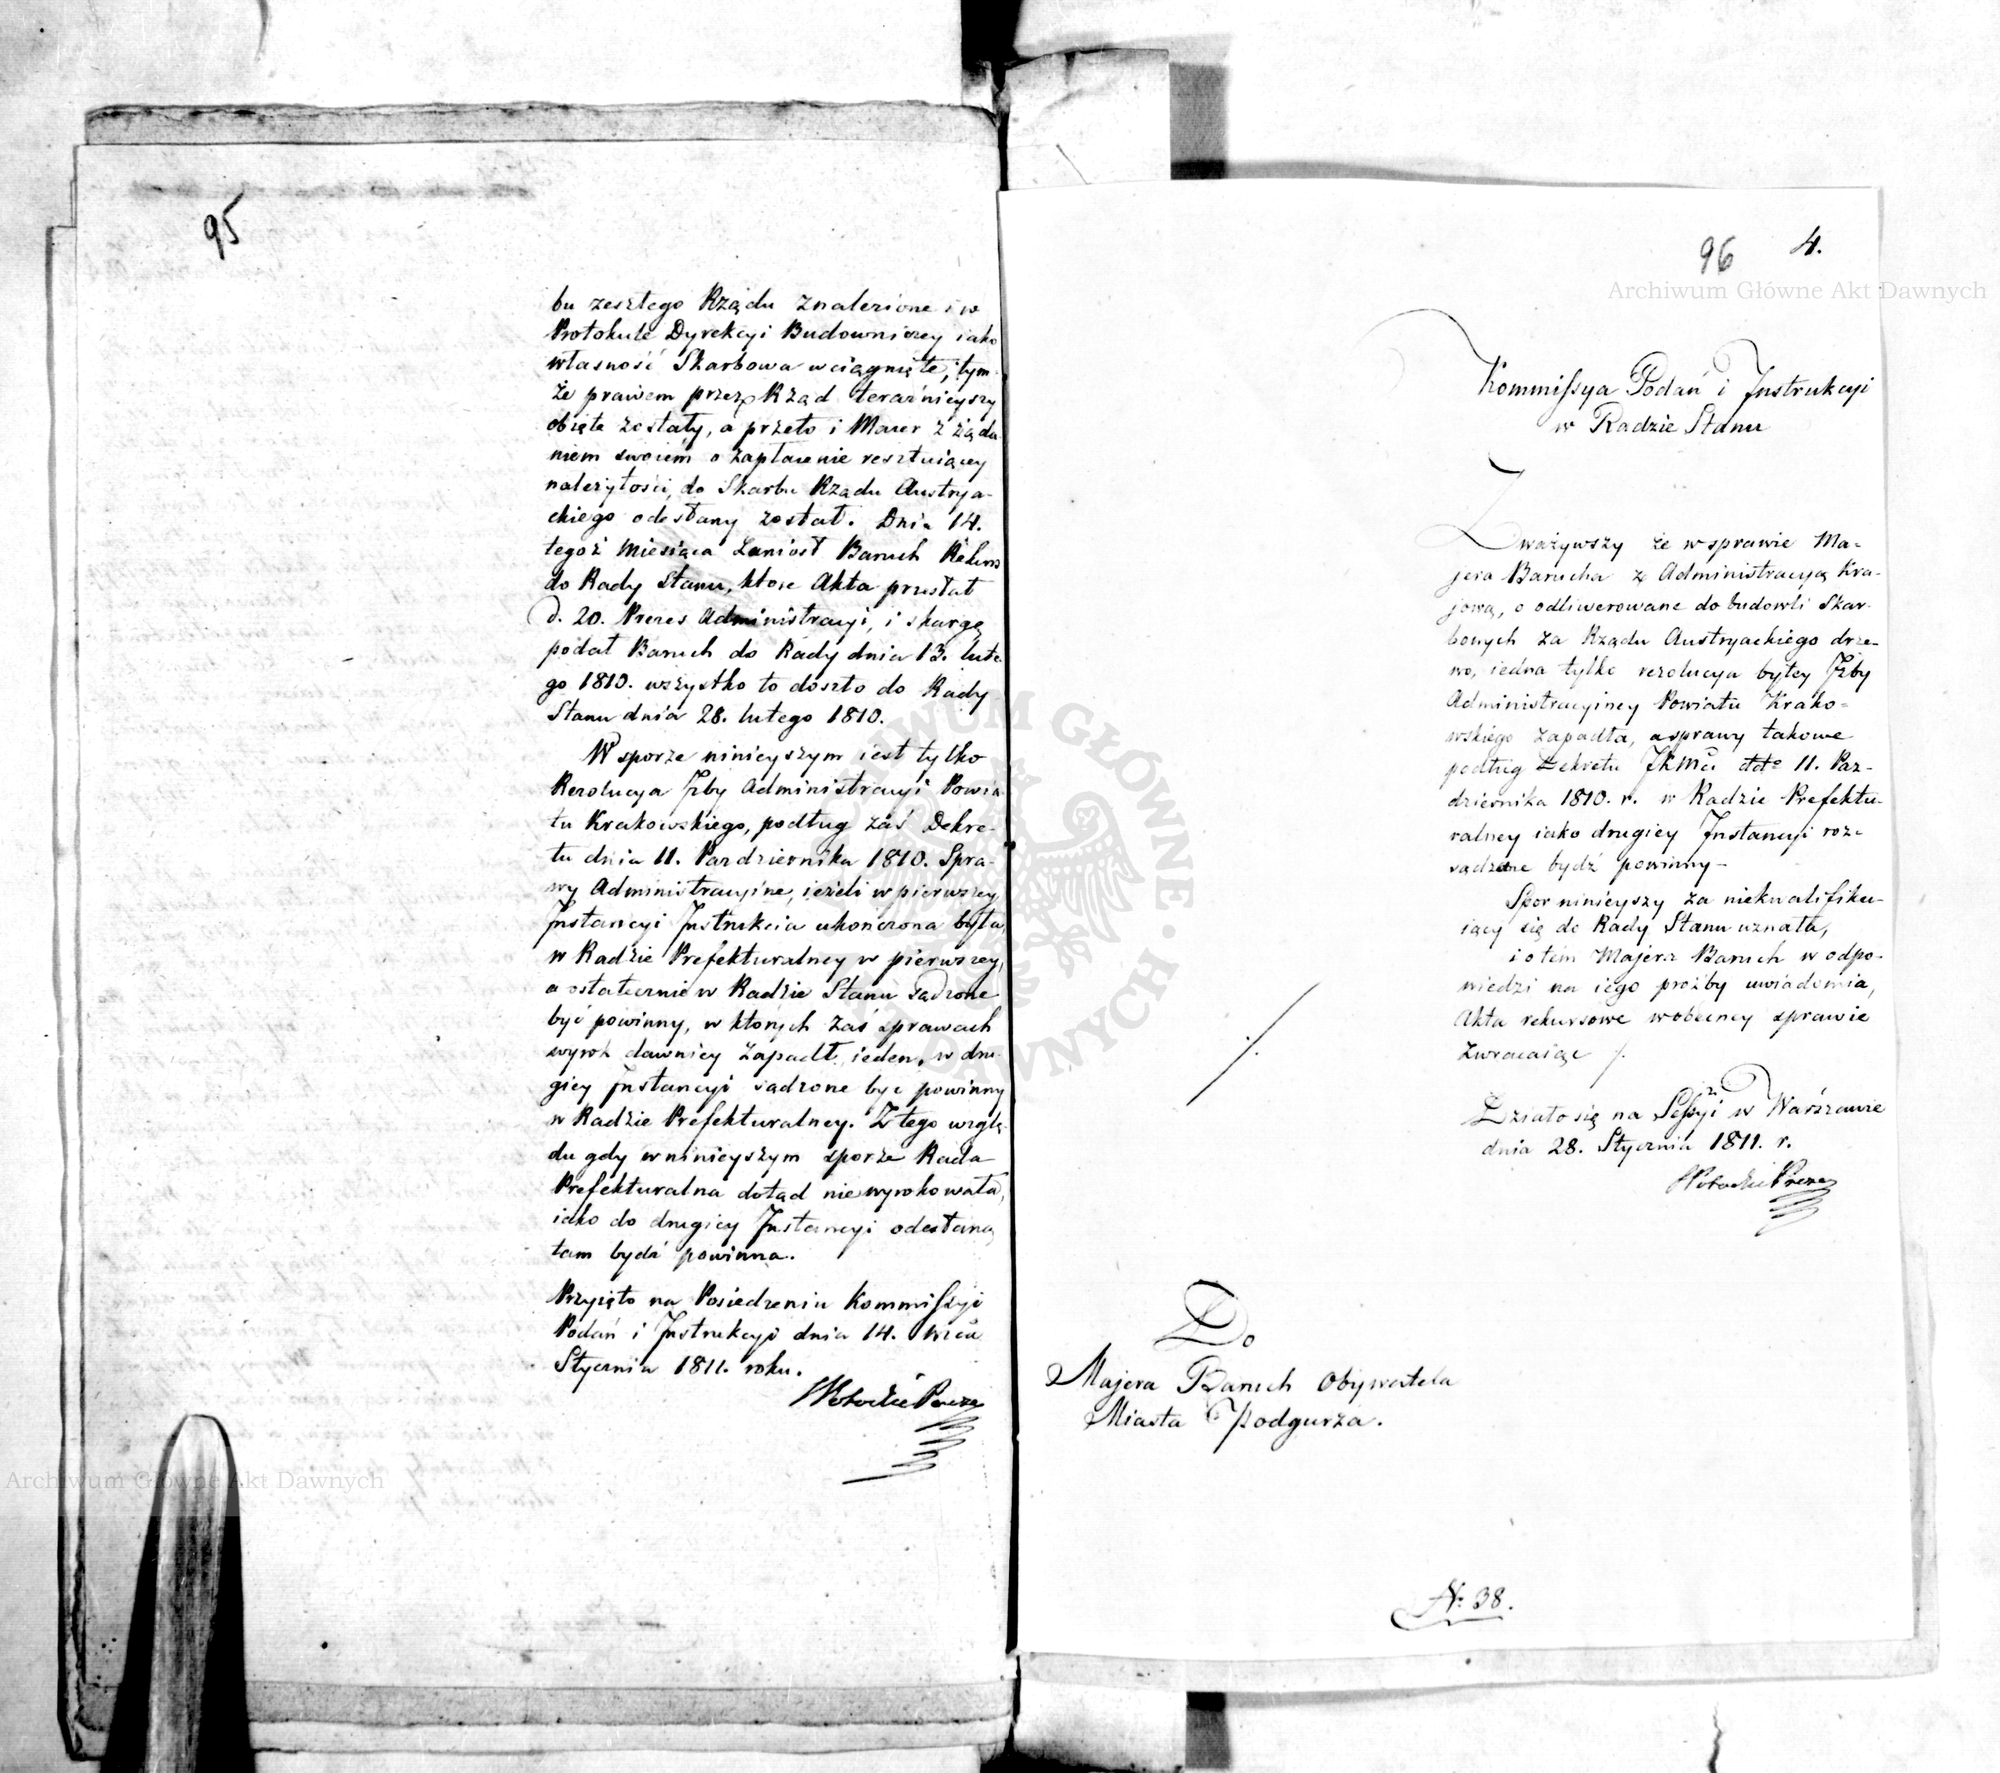 95
bu zeszłego Rządu znalezione i w
Protokule Dyrekcyi Budowniczey iako
własność Skarbowa wciągnięte, tym-
że prawem przez Rząd teraźnieyszy
obięte zostały, a przeto i Maier z żąda-
niem swoiem o zapłacenie resztuiącey
należytości, do Skarbu Rządu Austrya-
ckiego odesłany został. Dnia 14.
tegoż Miesiąca zaniosł Baruch Rekurs
do Rady Stanu, ktore Akta przesłał
d. 20. Prezes Administracyi, i skargę
podał Baruch do Rady dnia 13. lute-
go 1810. wszystko to doszło do Rady
Stanu dnia 28. lutego 1810.
W sporze ninieyszym iest tylko
Rezolucya Izby Administracyi Powia-
tu Krakowskiego, podług zaś Dekre-
tu dnia 11. Pazdziernika 1810. Spra-
wy Administracyine, ieżeli w pierwszey
Instancyi Instrukcia ukończona była,
w Radzie Prefekturalney w pierwszey,
a ostatecznie w Radzie Stanu sądzone
być powinny, w ktorych zaś sprawach
wyrok dawniey zapadł ieden, w dru-
giey Instancyi sądzone być powinny
w Radzie Prefekturalney. Z tego wzglę-
du gdy w ninieyszym sporze Rada
Prefekturalna dotąd nie wyrokowała,
iako do drugiey Instancyi odesłaną
tam bydź powinna.
Przyięto na Posiedzeniu Kommissyi
Podań i Instrukcyi dnia 14. mca
Stycznia 1811. roku.
Potocki Prezes
96 4.
Kommissya Podań i Instrukcyi
w Radzie Stanu
Zważywszy że w sprawie Ma-
jera Barucha z Administracyą Kra-
jową, o odliwerowane do budowli Skar-
bowych za Rządu Austryackiego drze-
wo, iedna tylko rezolucya byłey Izby
Administracyiney Powiatu Krako-
wskiego zapadła, a sprawy takowe
podług Dekretu JKMci dto 11. Paz-
dziernika 1810. r. w Radzie Prefektu-
ralney iako drugiey Instancyi roz-
sądzone bydź powinny -
Spor ninieyszy za niekwalifiku-
iący się do Rady Stanu uznała,
i o tem Majera Baruch w odpo-
wiedzi na iego proźby uwiadomia,
Akta rekursowe w obecney sprawie
zwracaiąc ./.
Działo się na Sessyi w Warszawie
dnia 28. Stycznia 1811. r.
Potocki Prezes
Do
Majera Baruch Obywatela
Miasta Podgurza.
Nr 38.
Archiwum Główne Akt Dawnych
Archiwum Główne Akt Dawnych
ARCHIWUM GŁÓWNE AKT DAWNYCH